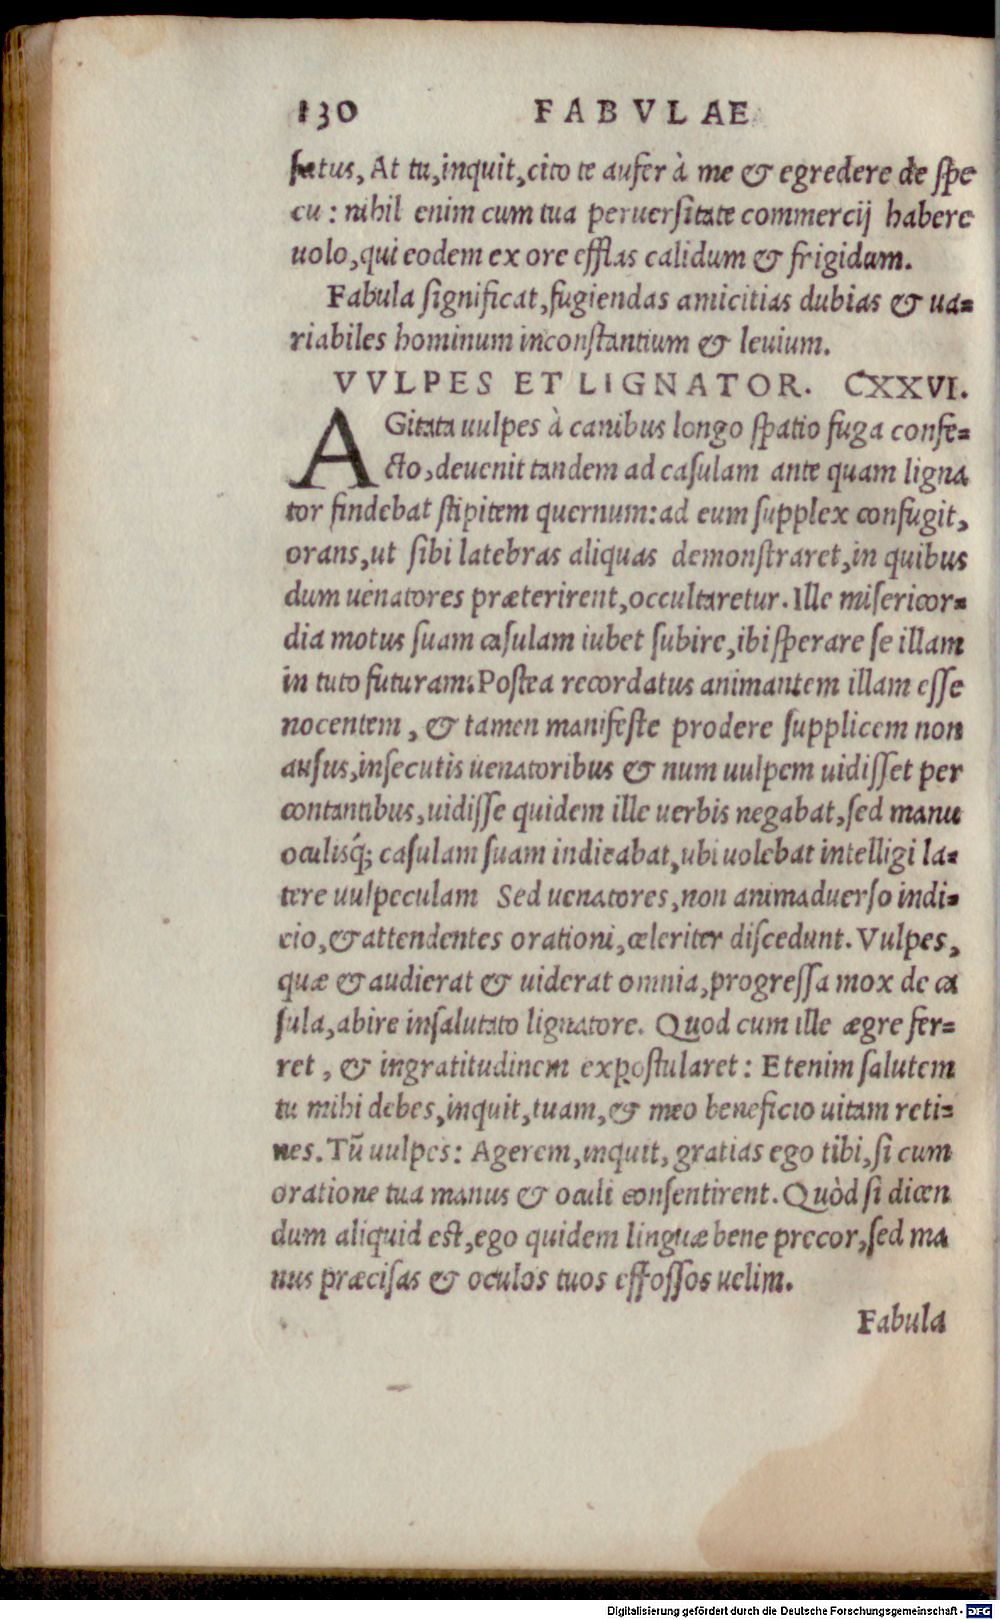 130 FABVLAE
satus, At tu, inquit, cito te aufer à me & egredere de spe
cu: nihil enim cum tua peruersitate commercij habere
uolo, qui eodem ex ore efflas calidum & frigidum.
Fabula significat, fugiendas amicitias dubias & ua=
riabiles hominum inconstantium & leuium.
VVLPES ET LIGNATOR. CXXVI.
AGitata uulpes à canibus longo spatio fuga confe=
cto, deuenit tandem ad casulam ante quam ligna
tor findebat stipitem quernum: ad eum supplex confugit,
orans, ut sibi latebras aliquas demonstraret, in quibus
dum uenatores præterirent, occultaretur. Ille misericor=
dia motus suam casulam iubet subire, ibi sperare se illam
in tuto futuram. Postea recordatus animantem illam esse
nocentem, & tamen manifeste prodere supplicem non
ausus, insecutis uenatoribus & num uulpem uidisset per
contantibus, uidisse quidem ille uerbis negabat, sed manu
oculisq́; casulam suam indicabat, ubi uolebat intelligi la=
tere uulpeculam Sed uenatores, non animaduerso indi=
cio, & attendentes orationi, celeriter discedunt. Vulpes,
quæ & audierat & uiderat omnia, progressa mox de ca
sula, abire insalutato lignatore. Quod cum ille ægre fer=
ret, & ingratitudinem expostularet: Etenim salutem
tu mihi debes, inquit, tuam, & meo beneficio uitam reti=
nes. Tū uulpes: Agerem, inquit, gratias ego tibi, si cum
oratione tua manus & oculi consentirent. Quòd si dicen
dum aliquid est, ego quidem linguæ bene precor, sed ma
nus præcisas & oculos tuos effossos uelim.
Fabula
Digitalisierung gefördert durch die Deutsche Forschungsgemeinschaft - DFG